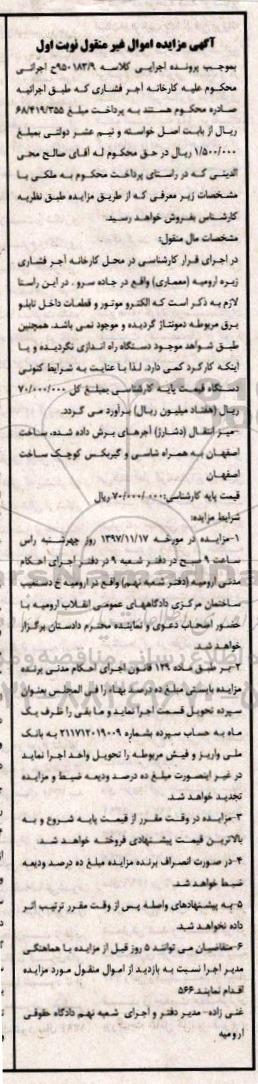 آگهی مزایده اموال غیر منقول نوبت اول
بموجب پرونده اجرایی کلاسه ۹۵۰۱۸۳/۹ج اجرائی
محکوم علیه کارخانه آجر فشاری که طبق اجرائیه
صادره محکوم هستند به پرداخت مبلغ ۶۸/۴۱۹/۳۵۵
ریال از بابت اصل خواسته و نیم عشر دولتی بمبلغ
۱/۵۰۰/۰۰۰ ریال در حق محکوم له آقای صالح محی
الدینی که در راستای پرداخت محکوم به ملکی با
مشخصات زیر معرفی که از طریق مزایده طبق نظریه
کارشناس بفروش خواهد رسید.
مشخصات مال منقول:
در اجرای قرار کارشناسی در محل کارخانه آجر فشاری
زیره ارومیه (معماری) واقع در جاده سرو . در این راستا
لازم به ذکر است که الکترو موتور و قطعات داخل تابلو
برق مربوطه دمونتاژ گردیده و موجود نمی باشد. همچنین
طبق شواهد موجود دستگاه راه اندازی نگردیده و یا
اینکه کارکرد کمی دارد. لذا با عنایت به شرایط کنونی
دستگاه قیمت پایه کارشناسی بمبلغ کل ۷۰/۰۰۰/۰۰۰
ریال (هفتاد میلیون ریال) برآورد می گردد.
-میز انتقال (دشارژ) آجرهای برش داده شده، ساخت
اصفهان به همراه شاسی و گیربکس کوچک ساخت
اصفهان
قیمت پایه کارشناسی: ۷۰/۰۰۰/۰۰۰ ریال
شرایط مزایده:
۱-مزایده در مورخه ۱۳۹۷/۱۱/۱۷ روز چهرشنبه راس
ساعت ۹ صبح در دفتر شعبه ۹ در دفتر اجرای احکام
مدنی ارومیه (دفتر شعبه نهم) واقع در ارومیه خ دستغیب
ساختمان مرکزی دادگاههای عمومی انقلاب ارومیه با
حضور اصحاب دعوی و نماینده محترم دادستان برگزار
خواهد شد.
۲-بر طبق ماده ۱۲۹ قانون اجرای احکام مدنی برنده
مزایده بایستی مبلغ ده درصد بهاء را فی المجلس بعنوان
سپرده تحویل قسمت اجرا نماید و مابقی را ظرف یک
ماه به حساب سپرده بشماره ۲۱۱۷۱۲۰۱۹۰۰۹ به بانک
ملی واریز و فیش مربوطه را تحویل واحد اجرا نماید
در غیر اینصورت مبلغ ده درصد ودیعه ضبط و مزایده
تجدید خواهد شد.
۳-مزایده در وقت مقرر از قیمت پایه شروع و به
بالاترین قیمت پیشنهادی فروخته خواهد شد.
۴-در صورت انصراف برنده مزایده مبلغ ده درصد ودیعه
ضبط خواهد شد.
۵-به پیشنهادهای واصله پس از وقت مقرر ترتیب اثر
داده نخواهد شد.
۶-متقاضیان می توانند ۵ روز قبل از مزایده با هماهنگی
مدیر اجرا نسبت به بازدید از اموال منقول مورد مزایده
اقدام نمایند.۵۶۶
غنی زاده- مدیر دفتر و اجرای شعبه نهم دادگاه حقوقی
ارومیه